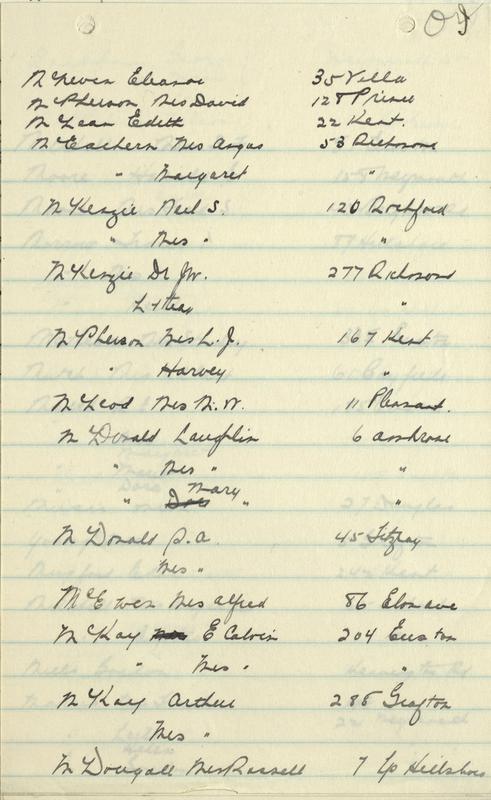 McNeven Eleanor 35 Villa
McPherson Mrs David 128 Prince
McLean Edith 22 Kent
McEachern Mrs Angus 53 Richmond
" Margaret "
McKenzie Neil S. 120 Rochford
" Mrs " "
McKenzie Dr J.W. 277 Richmond
"
McPherson Mrs L. J. 167 Kent
" Harvey "
McLeod Mrs M. W. 11 Pleasant.
McDonald Laughlin 6 Ambrose
" Mrs " "
" Mary " "
McDonald S.A. 45 Fitzroy
Mrs "
McEwen Mrs Alfred 86 Elm Ave
McKay E Calvin 204 Euston
" Mrs " "
McKay Arthur 288 Grafton
Mrs "
McDougall Mrs Russell 7 Up Hillsboro